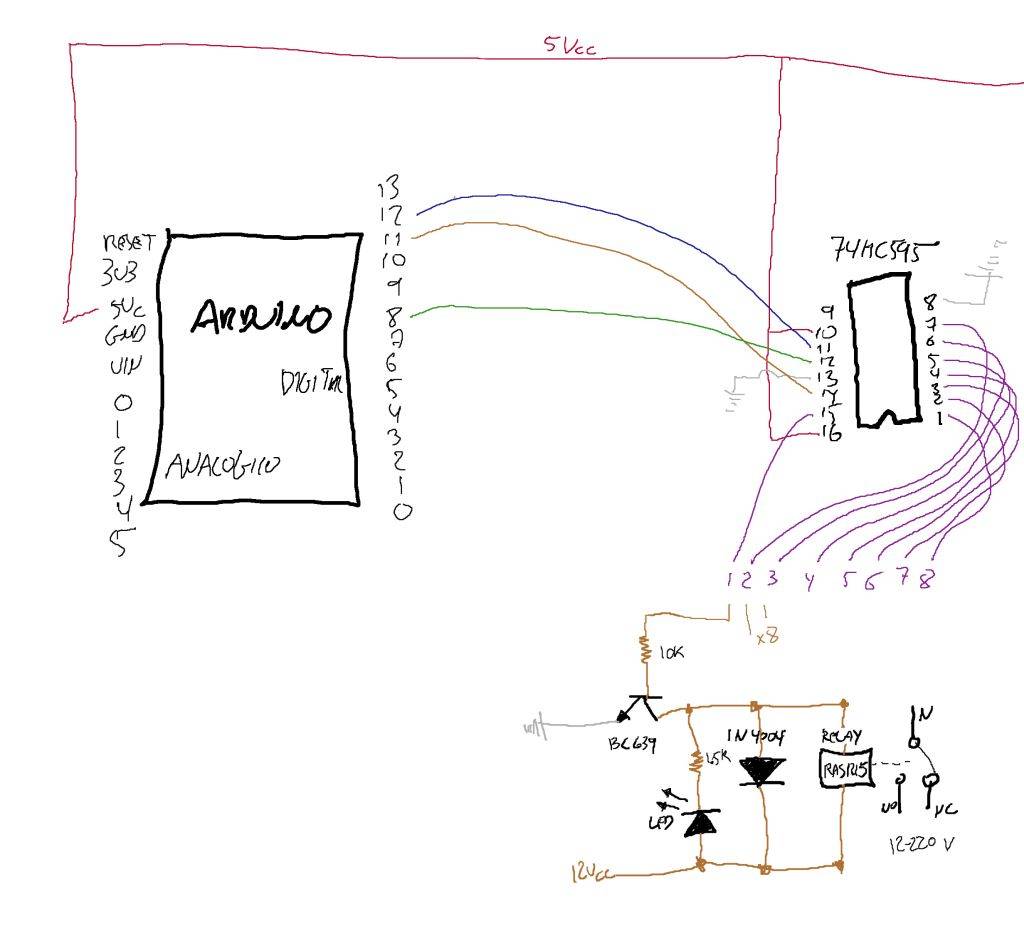 5Vcc
RESET
3V3
5Vc
GND
VIN
0
1
2
3
4
5
ARDUINO
DIGITAL
ANALOGICO
13
12
11
10
9
8
7
6
5
4
3
2
1
0
74HC595
9
10
11
12
13
14
15
16
8
7
6
5
4
3
2
1
1 2 3 4 5 6 7 8
x8
10K
BC639
1N4004
RELAY
RAS1215
1,5K
LED
N
NO
NC
12-220 V
12Vcc